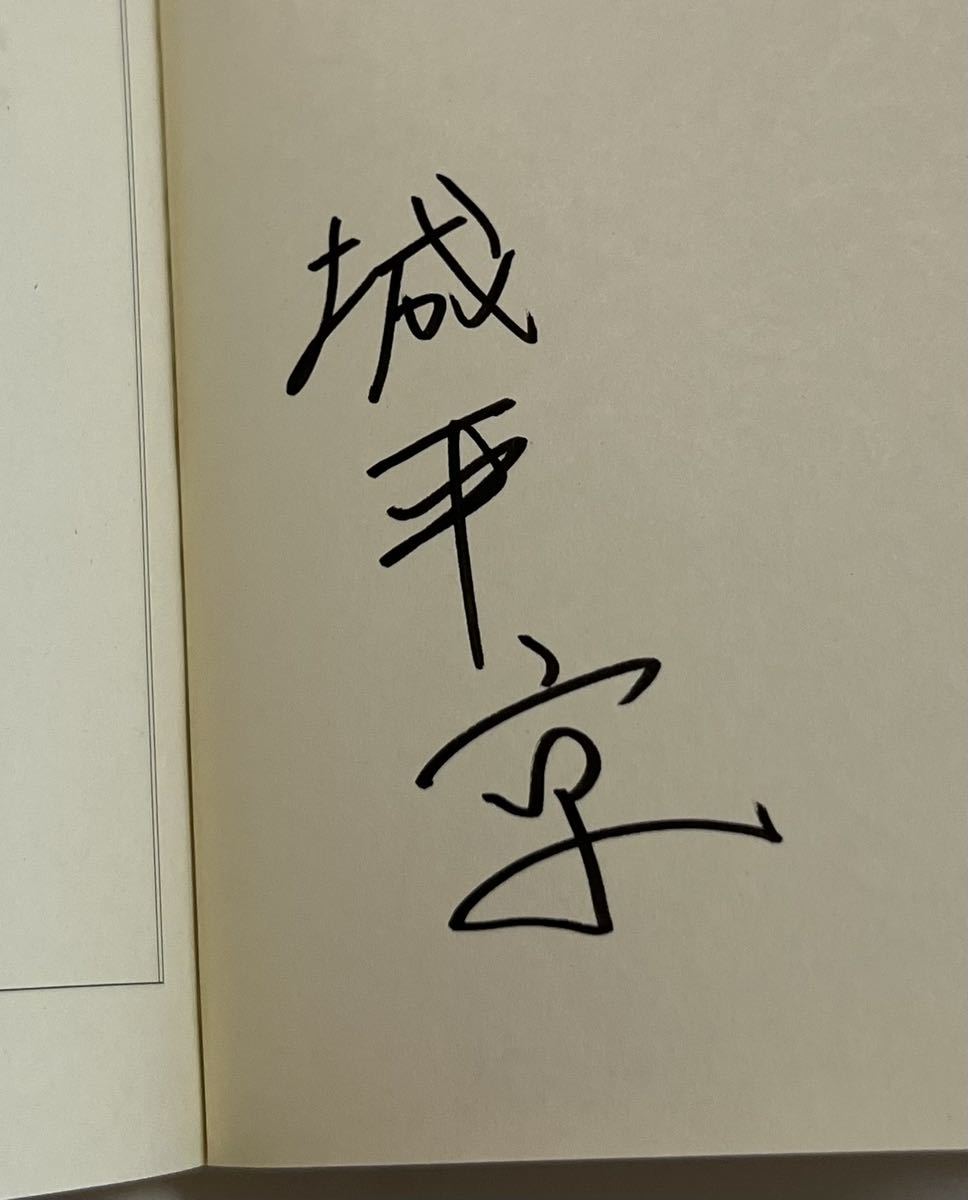 城平京